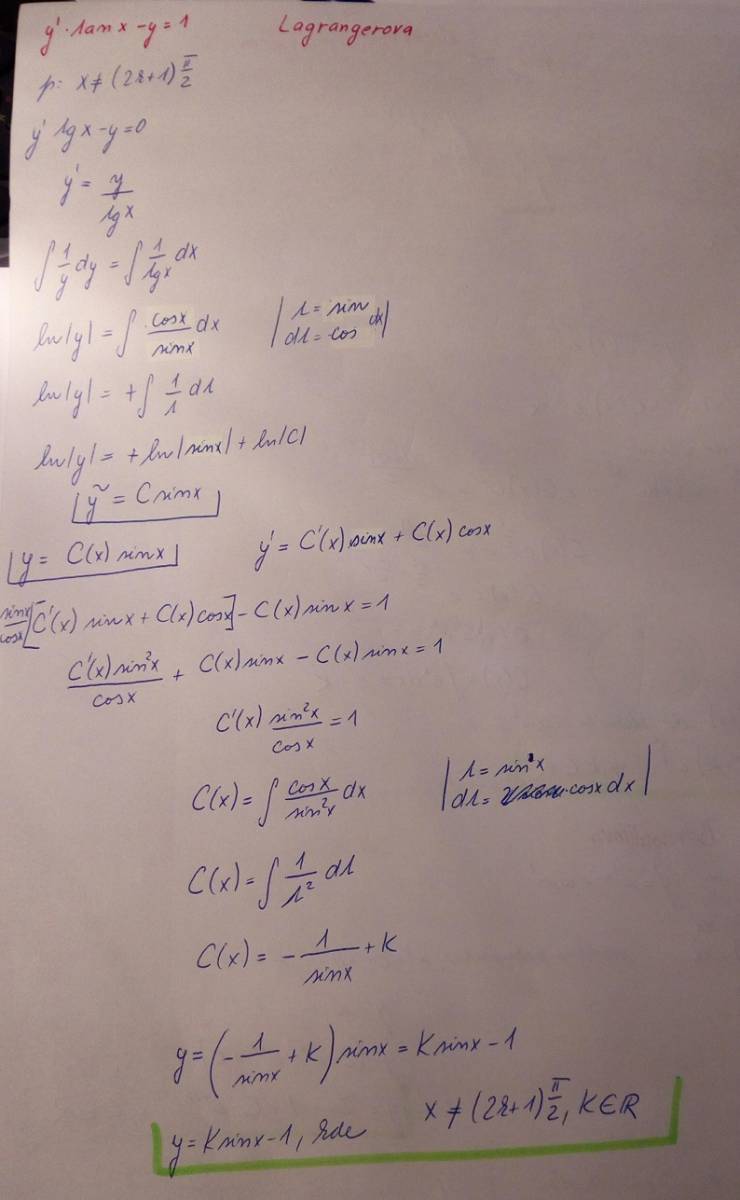 y' · tan x - y = 1 Lagrangerova
p: x ≠ (2k+1) π/2
y' tg x - y = 0
y' = y / tg x
∫ 1/y dy = ∫ 1/tg x dx
ln|y| = ∫ cos x / sin x dx | t = sin dt = cos dx |
ln|y| = + ∫ 1/t dt
ln|y| = + ln|sin x| + ln|C|
ỹ = C sin x
y = C(x) sin x y' = C'(x) sin x + C(x) cos x
sin x / cos x [C'(x) sin x + C(x) cos x] - C(x) sin x = 1
C'(x) sin² x / cos x + C(x) sin x - C(x) sin x = 1
C'(x) sin² x / cos x = 1
C(x) = ∫ cos x / sin² x dx | t = sin x dt = cos x dx |
C(x) = ∫ 1/t² dt
C(x) = - 1 / sin x + K
y = (- 1 / sin x + K) sin x = K sin x - 1
y = K sin x - 1, kde x ≠ (2k+1) π/2, K ∈ ℝ